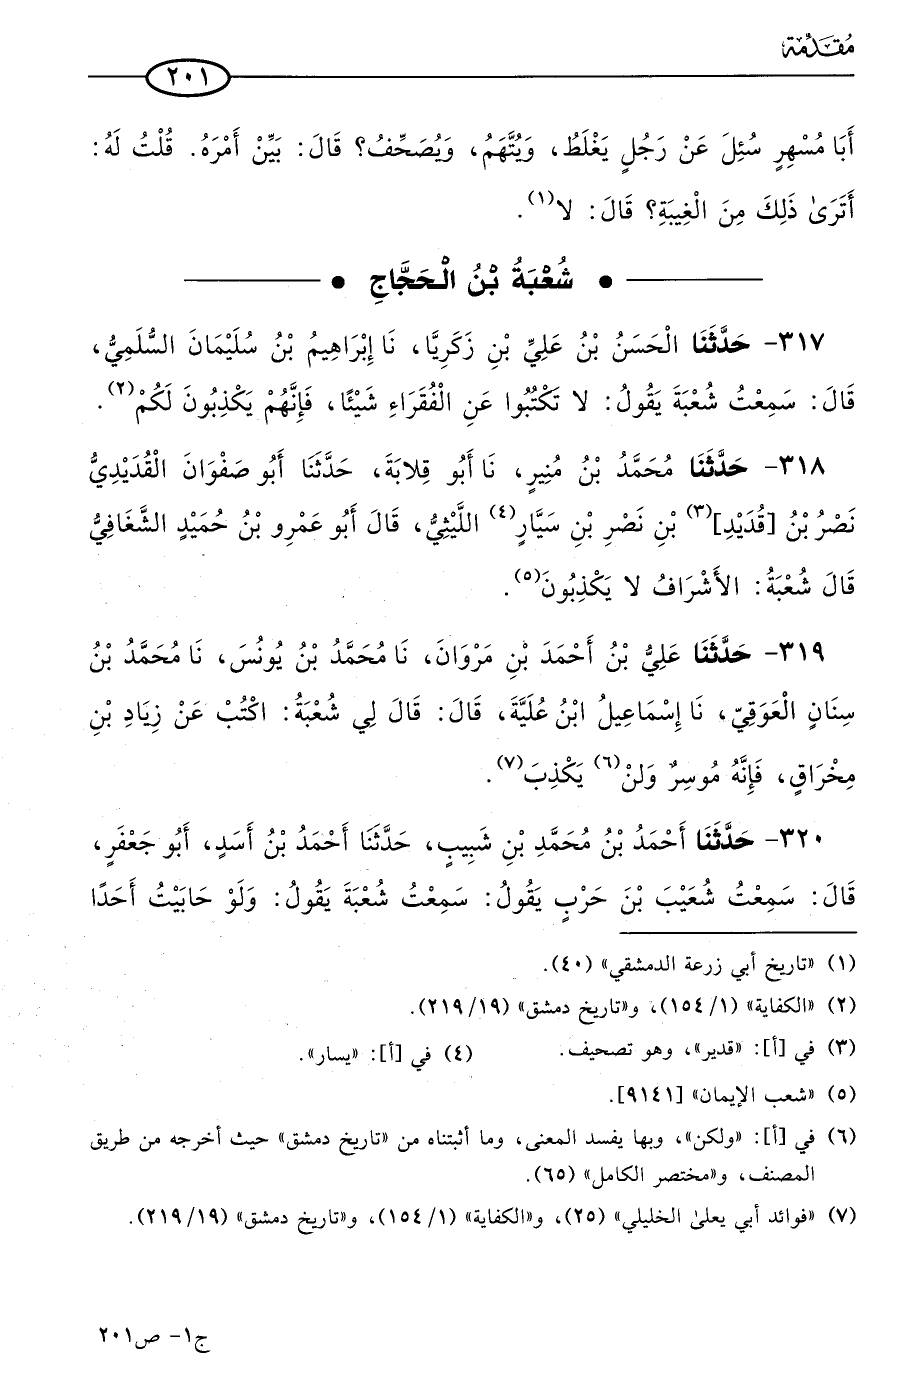 مُقَدِّمَة
٢٠١
أَبَا مُسْهِرٍ سُئِلَ عَنْ رَجُلٍ يَغْلَطُ، وَيُتَّهَمُ، وَيُصَحِّفُ؟ قَالَ: بَيِّنْ أَمْرَهُ. قُلْتُ لَهُ:
أَتَرَىٰ ذَلِكَ مِنَ الْغِيبَةِ؟ قَالَ: لا(١).
• شُعْبَةُ بْنُ الْحَجَّاجِ •
٣١٧- حَدَّثَنَا الْحَسَنُ بْنُ عَلِيِّ بْنِ زَكَرِيَّا، نَا إِبْرَاهِيمُ بْنُ سُلَيْمَانَ السُّلَمِيُّ،
قَالَ: سَمِعْتُ شُعْبَةَ يَقُولُ: لا تَكْتُبُوا عَنِ الْفُقَرَاءِ شَيْئًا، فَإِنَّهُمْ يَكْذِبُونَ لَكُمْ(٢).
٣١٨- حَدَّثَنَا مُحَمَّدُ بْنُ مُنِيرٍ، نَا أَبُو قِلابَةَ، حَدَّثَنَا أَبُو صَفْوَانَ الْقُدَيْدِيُّ
نَصْرُ بْنُ [قُدَيْدِ](٣) بْنِ نَصْرِ بْنِ سَيَّارٍ(٤) اللَّيْثِيُّ، قَالَ أَبُو عَمْرِو بْنُ حُمَيْدٍ الشَّغَافِيُّ
قَالَ شُعْبَةُ: الأَشْرَافُ لا يَكْذِبُونَ(٥).
٣١٩- حَدَّثَنَا عَلِيُّ بْنُ أَحْمَدَ بْنِ مَرْوَانَ، نَا مُحَمَّدُ بْنُ يُونُسَ، نَا مُحَمَّدُ بْنُ
سِنَانٍ الْعَوَقِيّ، نَا إِسْمَاعِيلُ ابْنُ عُلَيَّةَ، قَالَ: قَالَ لِي شُعْبَةُ: اكْتُبْ عَنْ زِيَادِ بْنِ
مِخْرَاقٍ، فَإِنَّهُ مُوسِرٌ وَلَنْ(٦) يَكْذِبَ(٧).
٣٢٠- حَدَّثَنَا أَحْمَدُ بْنُ مُحَمَّدِ بْنِ شَبِيبٍ، حَدَّثَنَا أَحْمَدُ بْنُ أَسَدٍ، أَبُو جَعْفَرٍ،
قَالَ: سَمِعْتُ شُعَيْبَ بْنَ حَرْبٍ يَقُولُ: سَمِعْتُ شُعْبَةَ يَقُولُ: وَلَوْ حَابَيْتُ أَحَدًا
(١) «تاريخ أبي زرعة الدمشقي» (٤٠).
(٢) «الكفاية» (١/ ١٥٤)، و«تاريخ دمشق» (١٩/ ٢١٩).
(٣) في [أ]: «قدير»، وهو تصحيف. (٤) في [أ]: «يسار».
(٥) «شعب الإيمان» [٩١٤١].
(٦) في [أ]: «ولكن»، وبها يفسد المعنى، وما أثبتناه من «تاريخ دمشق» حيث أخرجه من طريق
المصنف، و«مختصر الكامل» (٦٥).
(٧) «فوائد أبي يعلىٰ الخليلي» (٢٥)، و«الكفاية» (١/ ١٥٤)، و«تاريخ دمشق» (١٩/ ٢١٩).
ج١- ص٢٠١